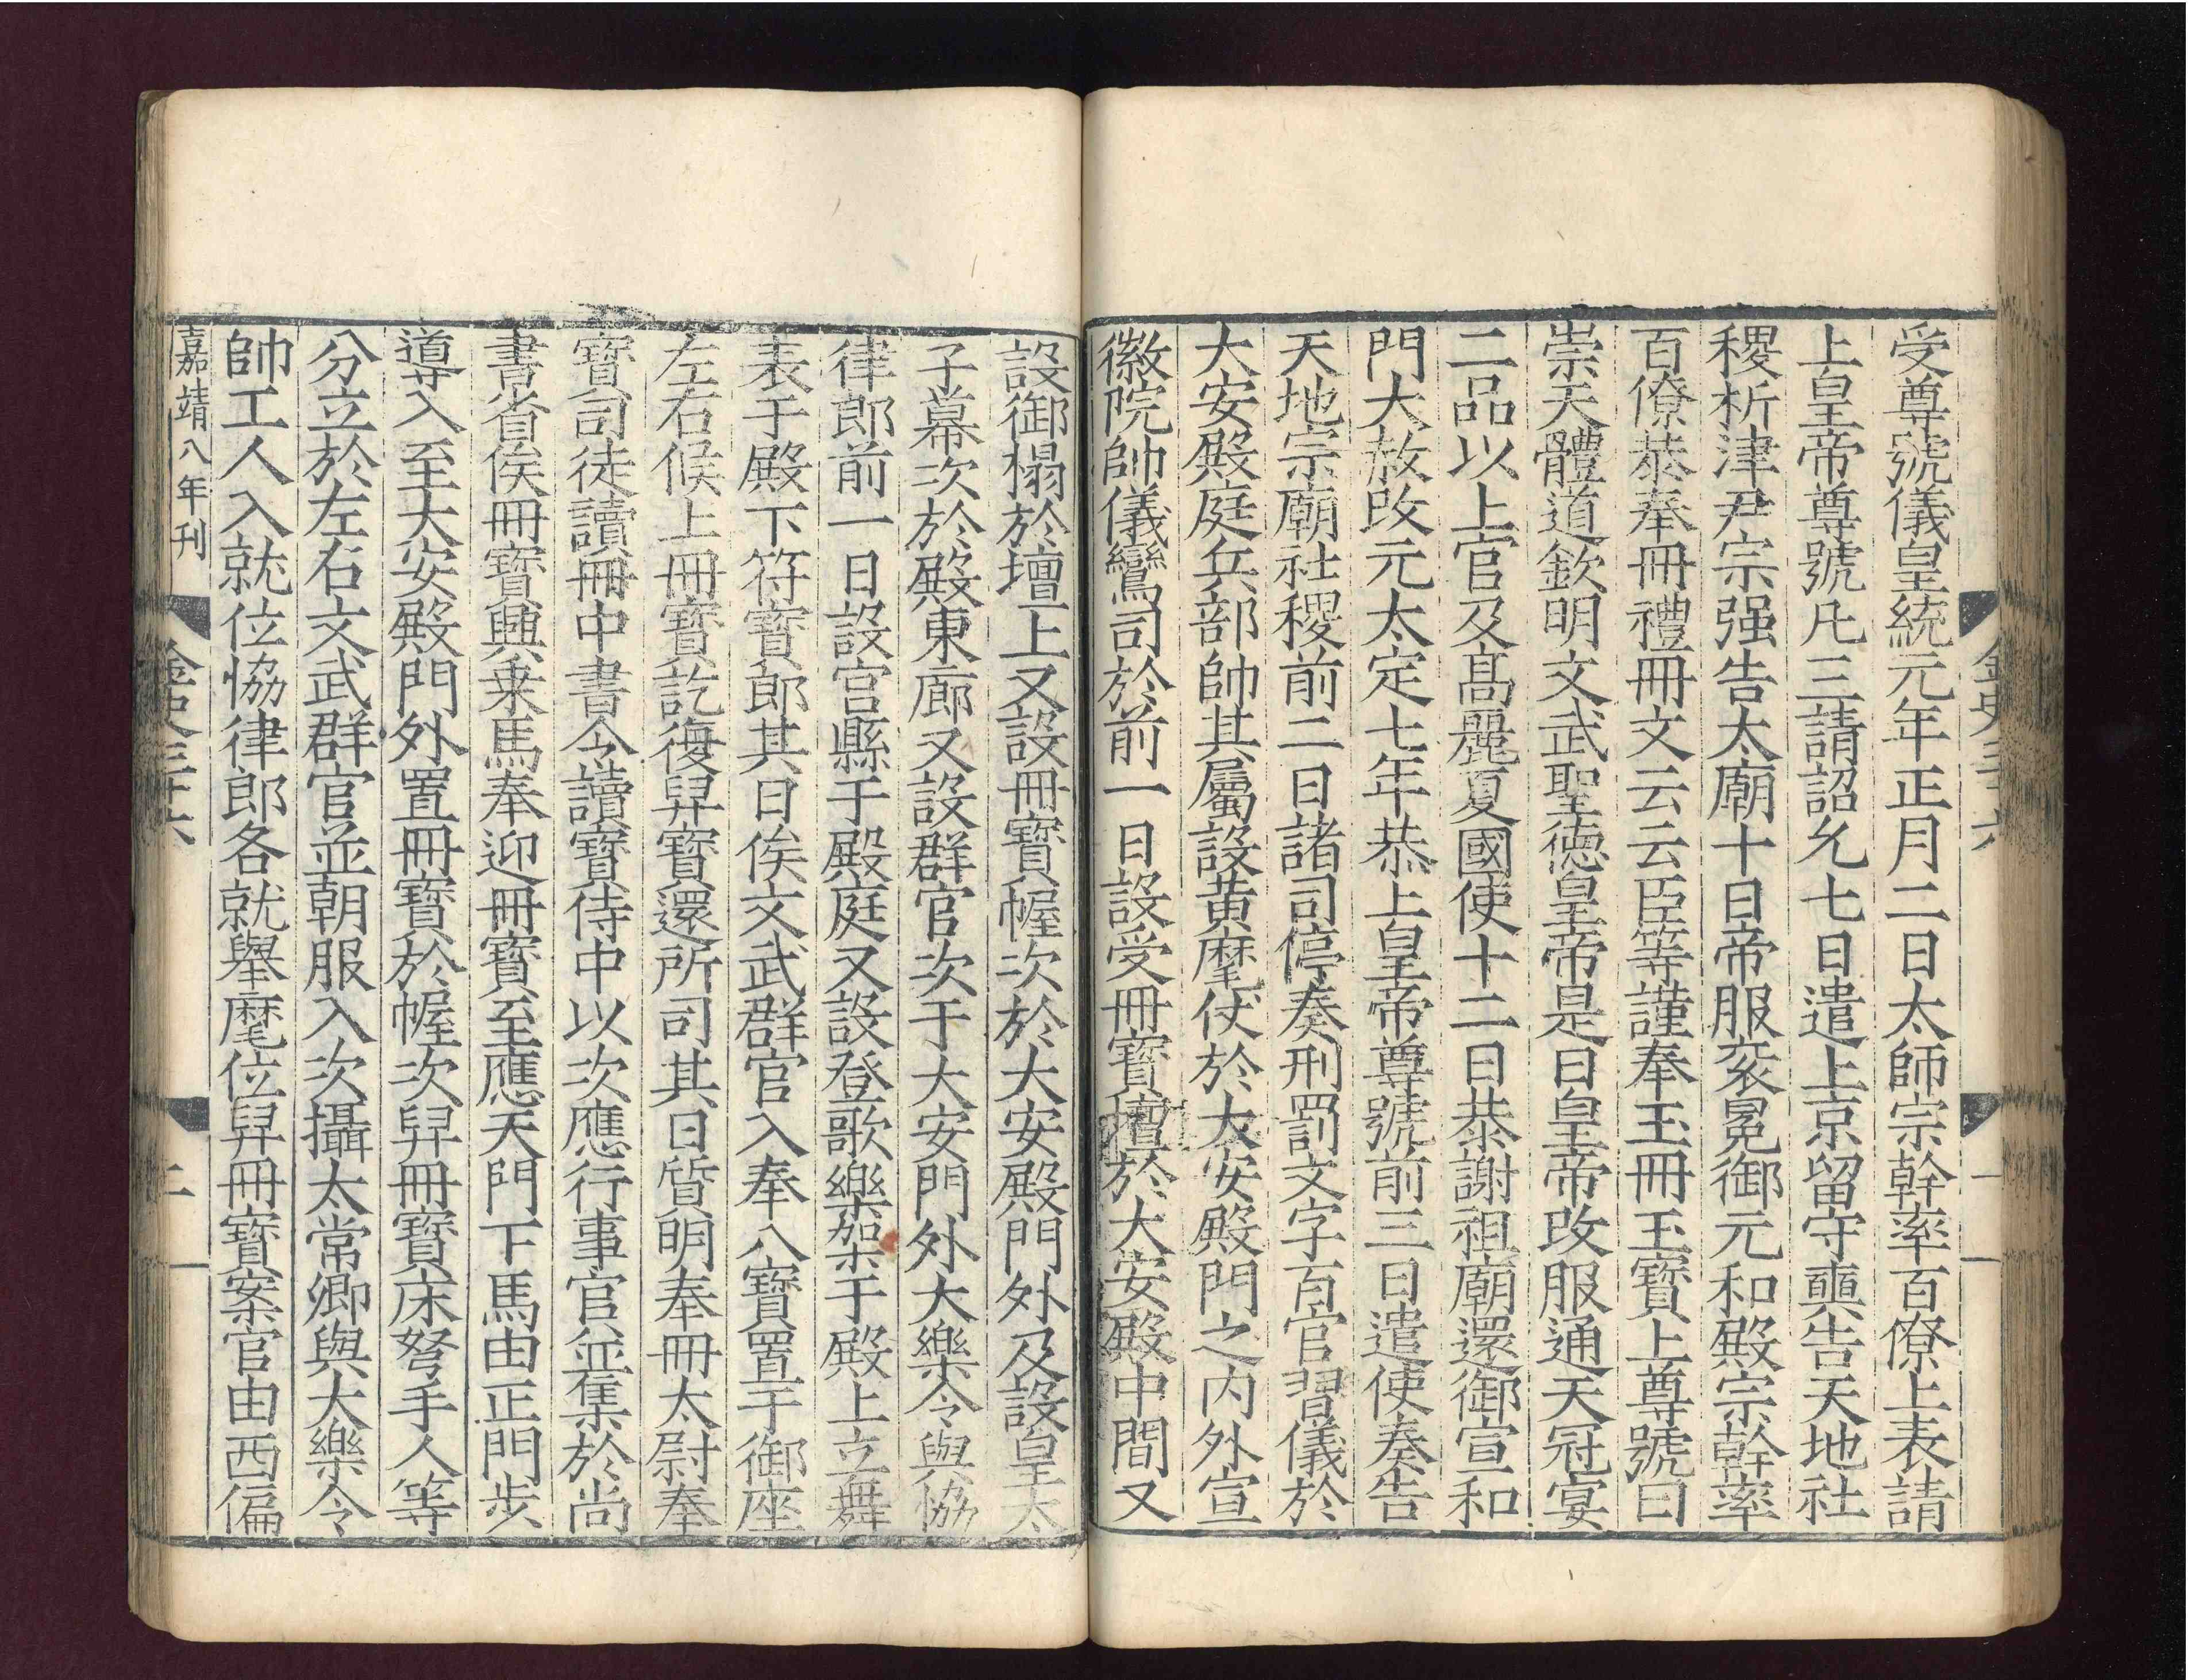 金史三十六
一
受尊號儀皇統元年正月二日太師宗幹率百僚上表請
上皇帝尊號凡三請詔允七日遣上京留守奭告天地社
稷析津尹宗强告太廟十日帝服衮冕御元和殿宗幹率
百僚恭奉冊禮冊文云云臣等謹奉玉冊玉寶上尊號曰
崇天體道欽明文武聖德皇帝是日皇帝改服通天冠宴
二品以上官及髙麗夏國使十二日恭謝祖廟還御宣和
門大赦改元大定七年恭上皇帝尊號前三日遣使奏告
天地宗廟社稷前二日諸司停奏刑罰文字百官習儀於
大安殿庭兵部帥其屬設黄麾仗於大安殿門之内外宣
徽院帥儀鸞司於前一日設受冊寶壇於大安殿中間又
設御榻於壇上又設冊寶幄次於大安殿門外及設皇太
子幕次於殿東廊又設群官次于大安門外大樂令與恊
律郎前一日設宫縣于殿庭又設登歌樂架于殿上立舞
表于殿下符寶郎其日俟文武群官入奉八寶置于御座
左右候上冊寶訖復舁寶還所司其日質明奉冊太尉奉
寶司徒讀冊中書令讀寶侍中以次應行事官並集於尚
書省俟冊寶興乗馬奉迎冊寶至應天門下馬由正門步
導入至大安殿門外置冊寶於幄次舁冊寶床弩手人等
分立於左右文武群官並朝服入次攝太常卿與大樂令
帥工人入就位恊律郎各就舉麾位舁冊寶案官由西偏
嘉靖八年刊
金史三十六
二